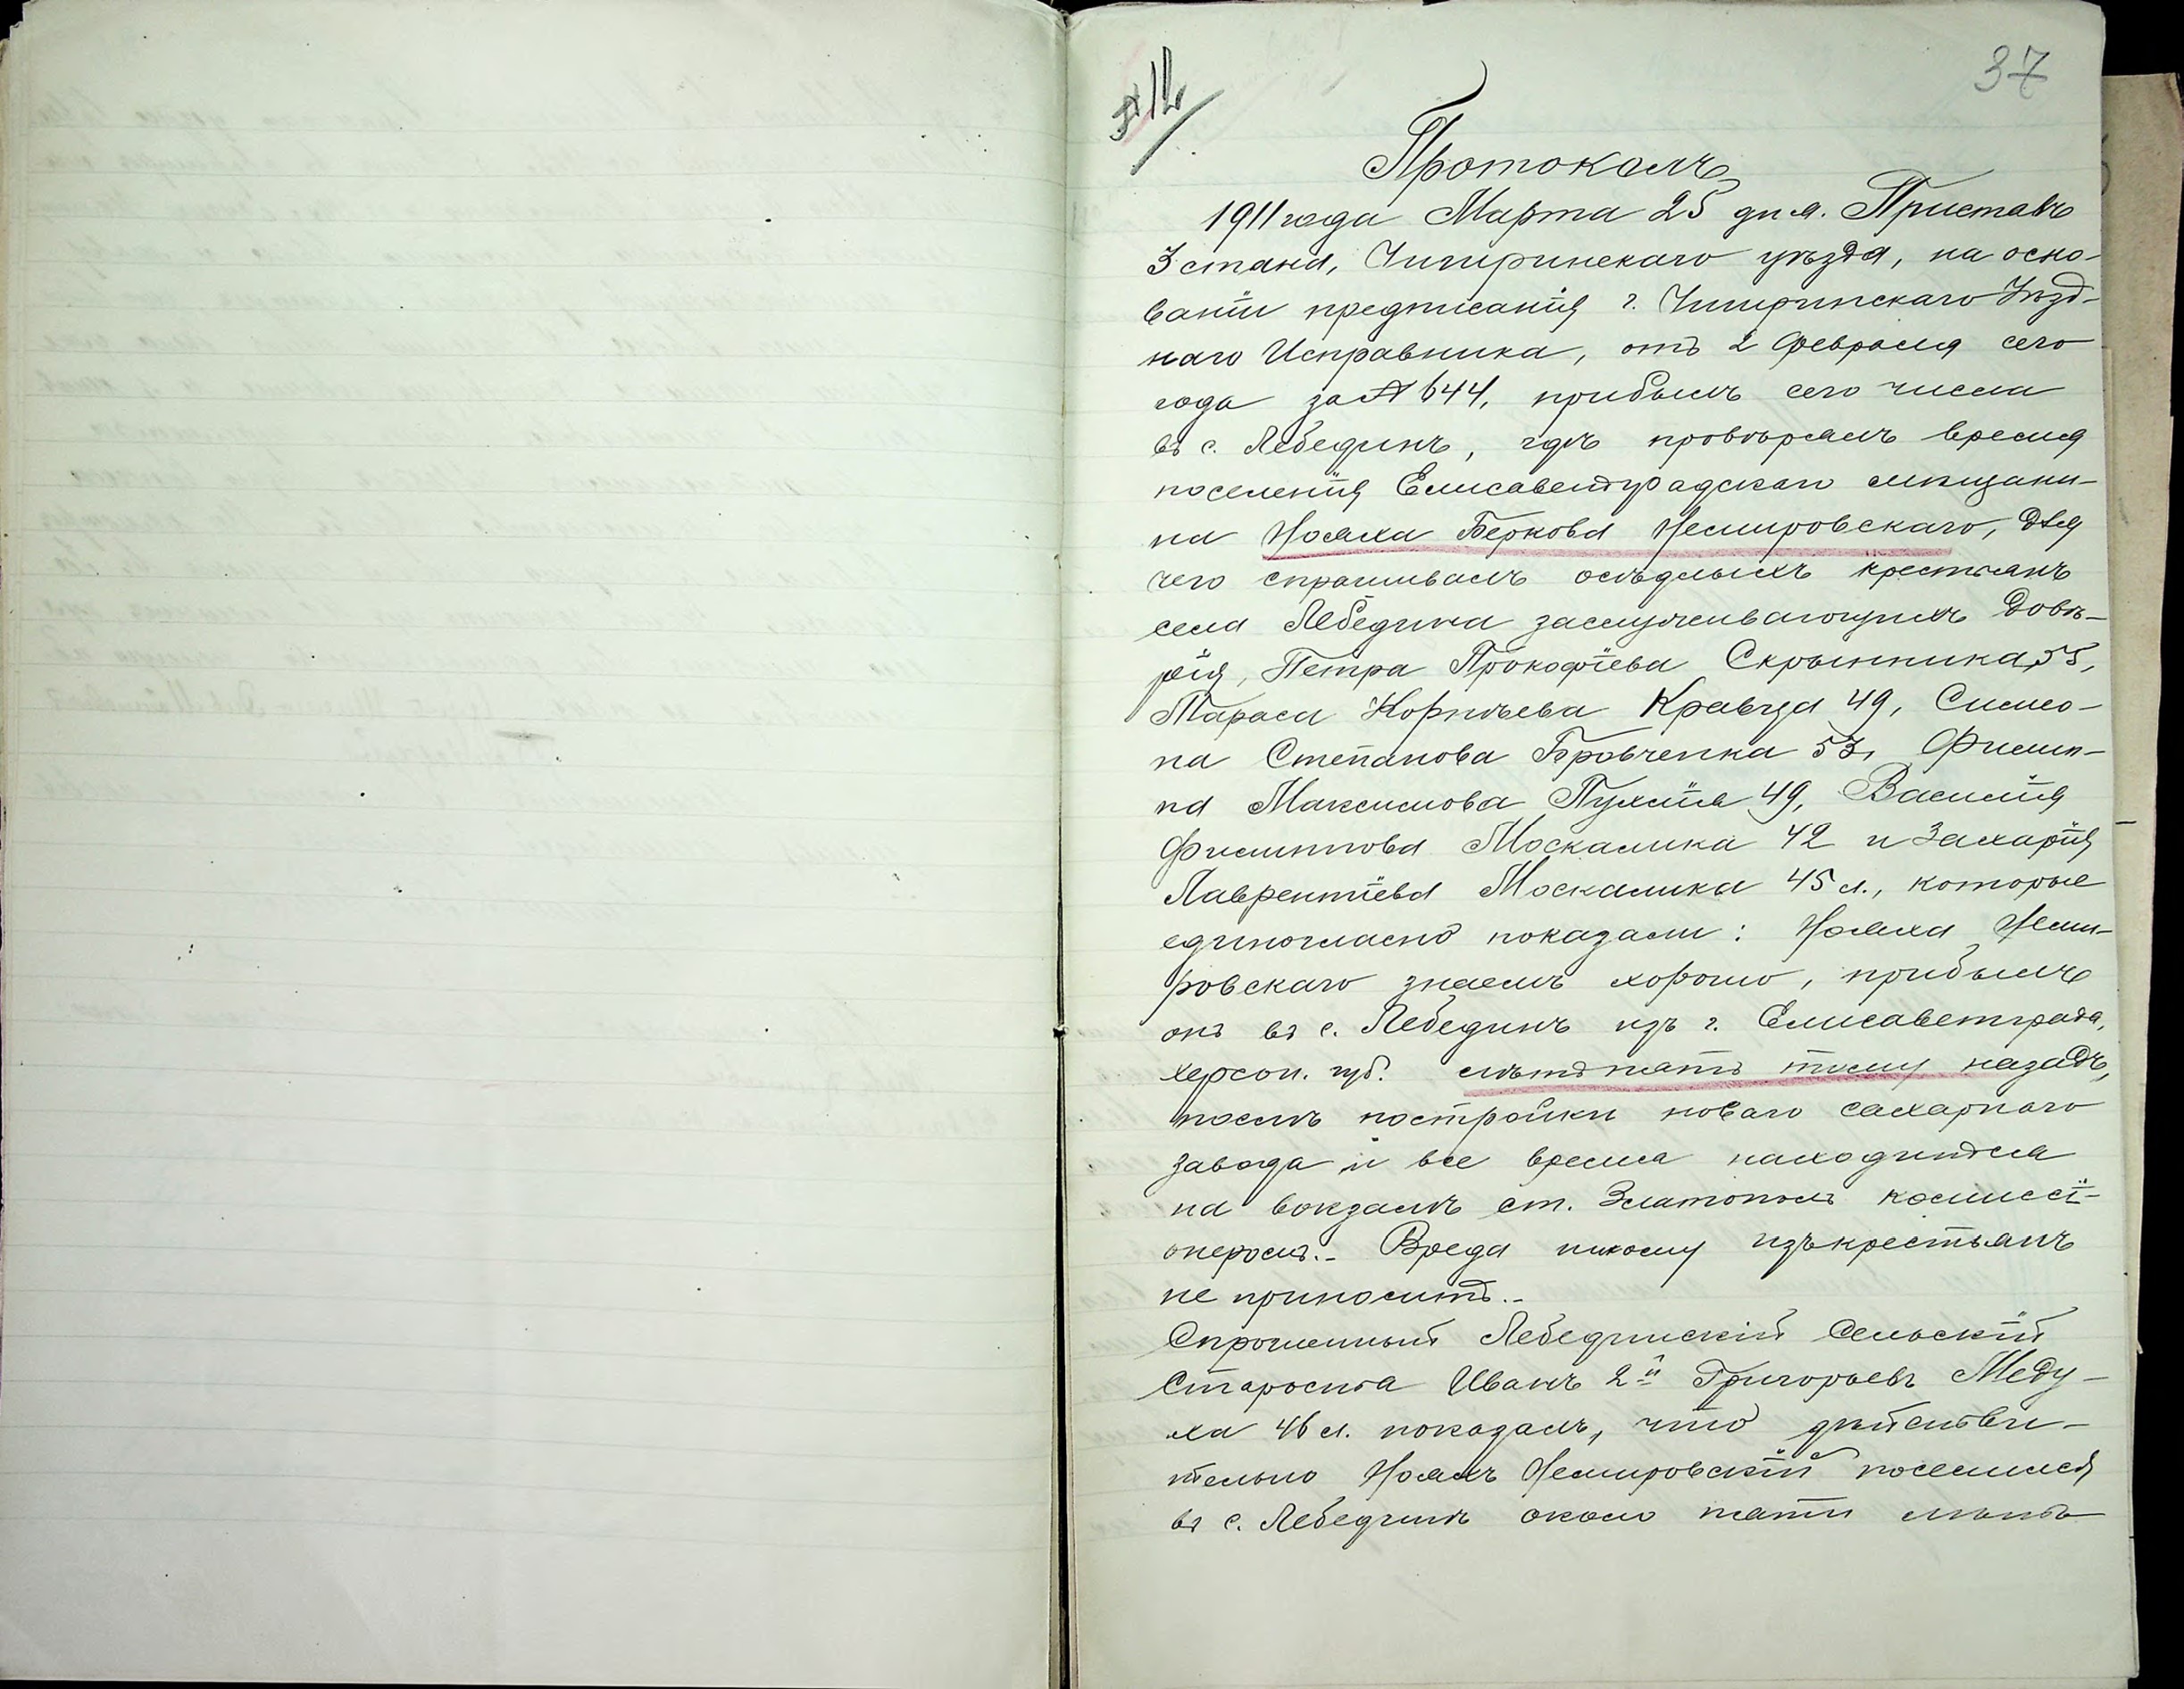 37
№12
Протоколъ
1911 года Марта 25 дня. Приставъ
3 стана, Чигиринскаго уѣзда, на осно-
ваніи предписанія г. Чигиринскаго Уѣзд-
наго Исправника, отъ 2 Февраля сего
года за № 644, прибылъ сего числа
въ с. Лебединъ, гдѣ провѣрялъ время
поселенія Елисаветградскаго мѣщани-
на Ноаха Беркова Немировскаго, для
чего спрашивалъ осѣдлыхъ крестьянъ
села Лебедина заслуживающихъ довѣ-
рія, Петра Прокофіева Скрынника 55,
Тараса Корнѣева Кравца 49, Симео-
на Степанова Бровченка 53, Филип-
па Максимова Пухтія 49, Василія
Филиппова Москалика 42 и Захарія
Лаврентіева Москалика 45 л., которые
единогласно показали: Ноаха Неми-
ровскаго знаемъ хорошо, прибылъ
онъ въ с. Лебединъ изъ г. Елисаветграда,
Херсон. губ. лѣтъ пять тому назадъ,
послѣ постройки новаго сахарнаго
завода и все время находится
на вокзалѣ ст. Златополь комиссі-
онеромъ.- Вреда никому изъ крестьянъ
не приноситъ.-
Спрошенный Лебединскій Сельскій
Староста Иванъ 2й Григорьевъ Меду-
ха 46 л. показалъ, что дѣйстви-
тельно Ноахъ Немировскій поселился
въ с. Лебединѣ около пяти лѣтъ